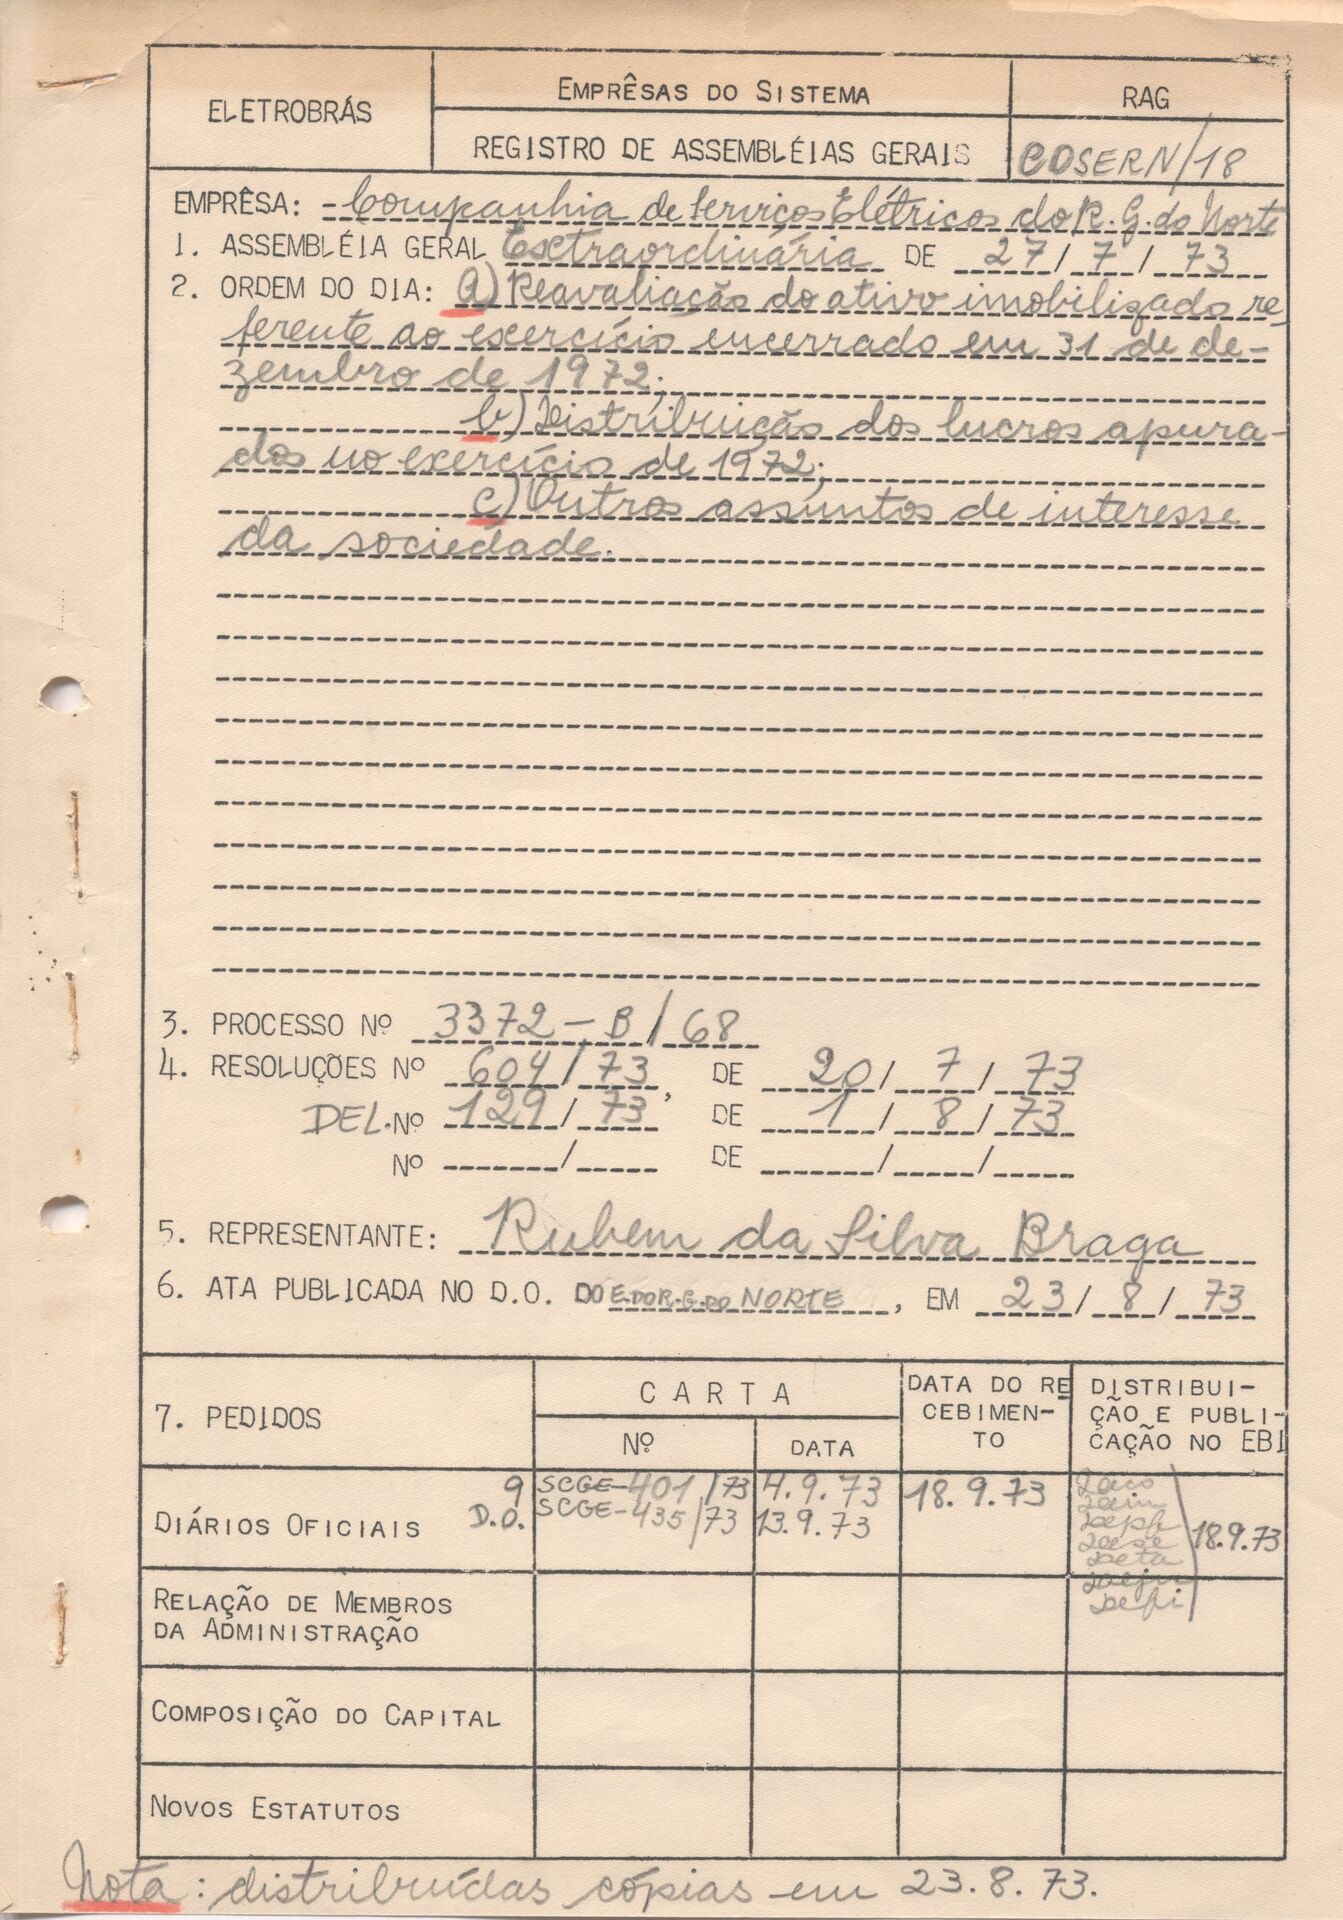 ELETROBRÁS
EMPRÊSAS DO SISTEMA
REGISTRO DE ASSEMBLÉIAS GERAIS
RAG
COSERN/18
EMPRÊSA: - Companhia de Serviços Elétricos do R. G. do Norte
1. ASSEMBLÉIA GERAL Extraordinária DE 27/7/73
2. ORDEM DO DIA: a) Reavaliação do ativo imobilizado re-
ferente ao exercício encerrado em 31 de de-
zembro de 1972;
b) Distribuição dos lucros apura-
dos no exercício de 1972;
c) Outros assuntos de interesse
da sociedade.
3. PROCESSO Nº 3372-B/68
4. RESOLUÇÕES Nº 604/73, DE 20/7/73
DEL. Nº 129/73 DE 1/8/73
Nº / DE / /
5. REPRESENTANTE: Rubem da Silva Braga
6. ATA PUBLICADA NO D.O. DO E. DO R. G. DO NORTE, EM 23/8/73
7. PEDIDOS
CARTA
Nº
DATA
DATA DO RE
CEBIMEN-
TO
DISTRIBUI-
ÇÃO E PUBLI-
CAÇÃO NO EBI
DIÁRIOS OFICIAIS
9
D.O.
SCGE-401/73 4.9.73 18.9.73
SCGE-435/73 13.9.73
18.9.73
RELAÇÃO DE MEMBROS
DA ADMINISTRAÇÃO
COMPOSIÇÃO DO CAPITAL
NOVOS ESTATUTOS
Nota: distribuídas cópias em 23.8.73.